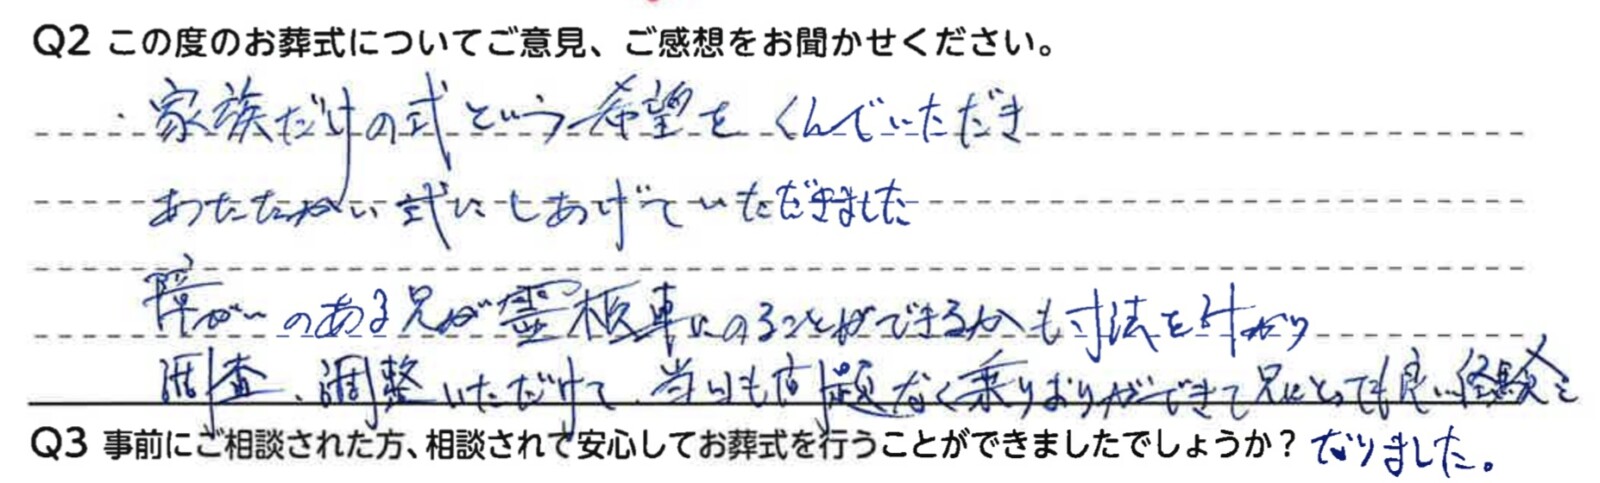 Q2 この度のお葬式についてご意見、ご感想をお聞かせください。
・家族だけの式という希望をくんでいただき
あたたかい式にしあげていただきました
障がいのある兄が霊柩車にのることができるかも寸法を計かり
調査、調整いただけて、当日も問題なく乗りおりができて兄にとっても良い経験と
Q3 事前にご相談された方、相談されて安心してお葬式を行うことができましたでしょうか？ なりました。